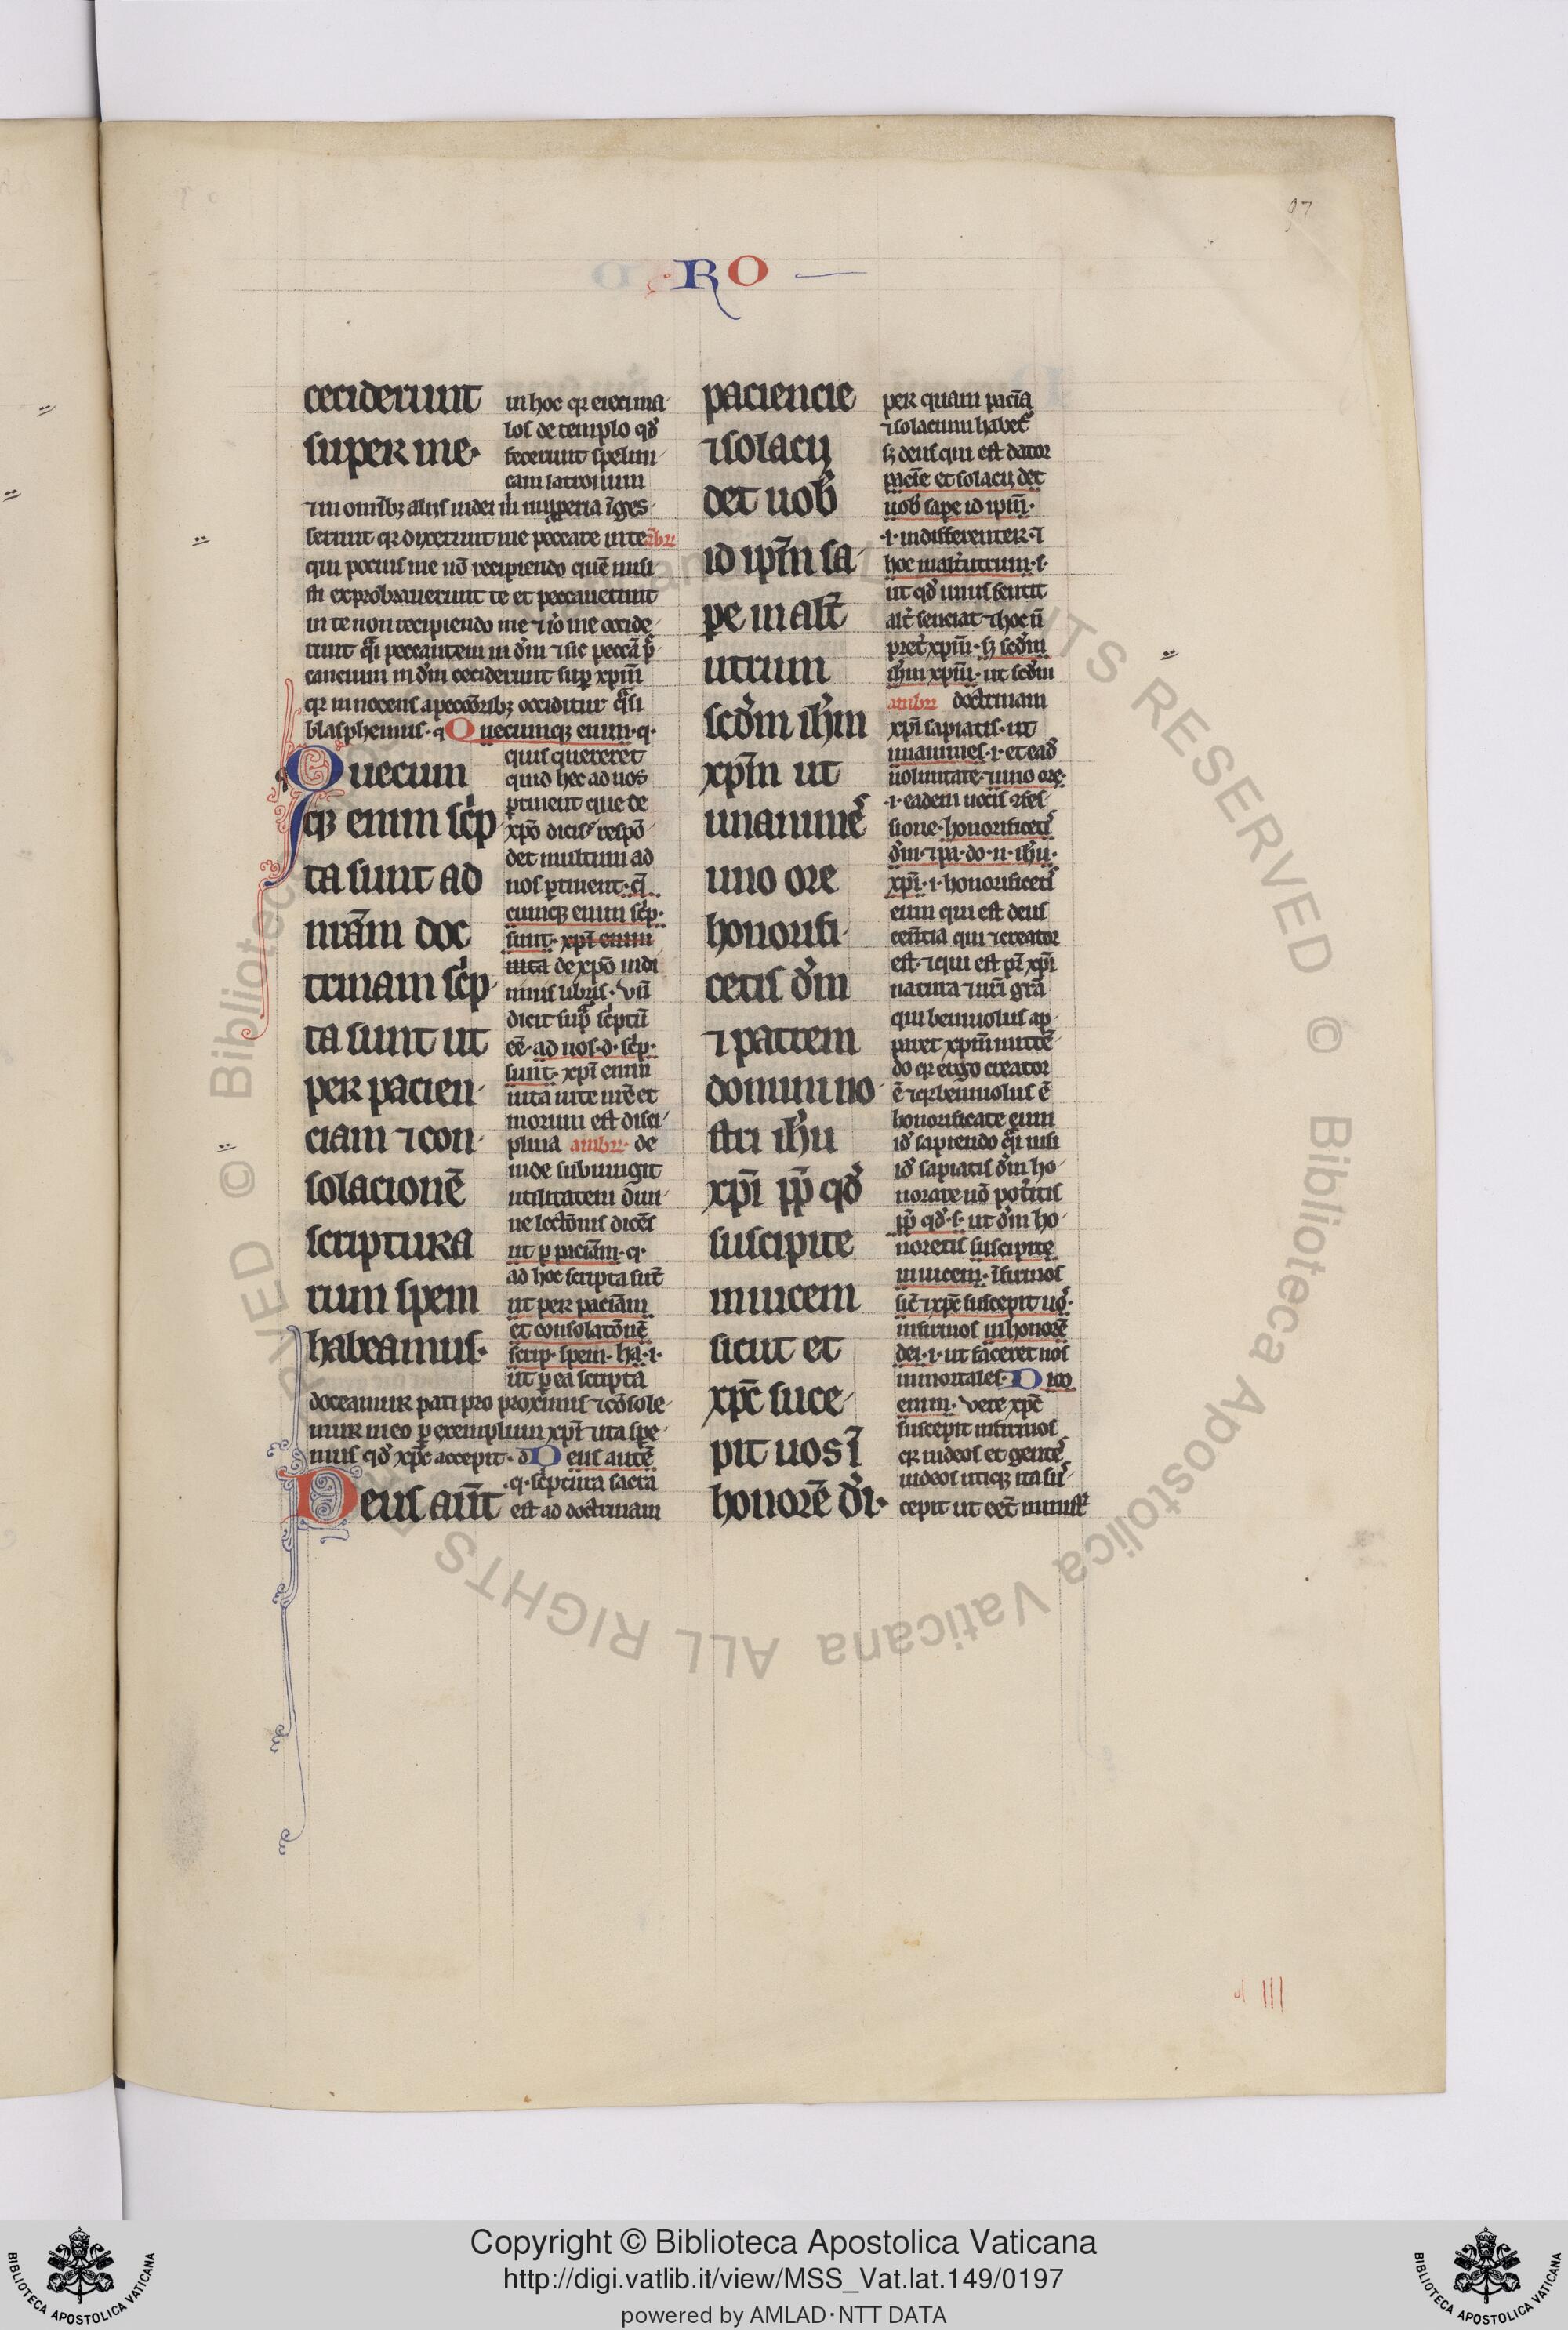 97
RO
ceciderunt
super me·
in hoc qr eieci ma
los de templo qd̓
fecerunt spelun
cam latronum
⁊ in om̄ibȝ aliis iudei
serunt qr dixerunt me peccare in te
qui pocius me nō recipiendo quē misi
sti exprobrauerunt te et peccauerunt
in te non recipiendo me ⁊ iō me occide
runt q̄i peccantem in dm̄ ⁊ sic peccā p̄
cancium in dm̄ ceciderunt sup xpm̄
qr innocens a peccōribȝ occiditur q̄si
blasphemus· q Quecumqȝ enim·q·
Quecum
qȝ enim sc̓p
ta sunt ad
nrām doc
trinam sc̓p
ta sunt ut
per pacien
ciam ⁊ con
solacionē
scriptura
rum spem
habeamus·
quis quereret
quid hec ad nos
ꝑtinent que de
xpō dicis respō
det multum ad
nos ꝑtinent· q̄
cumqȝ enim sc̓p·
sunt· xpī enim
uita de xpō indi
uinis libris· Vn̄
dicit sup̄ sc̓ptū
eē· ad nos·d·sc̓p·
sunt· xpī enim
uita uite nr̄e et
morum est disci
plina ambr· de
inde subiungit
utilitatem diui
ne lectōnis dicēs
ut ꝑ paciām·q·
ad hoc scripta sūt
ut per paciām
et consolatōnē
scrip· spem· ha·i·
ut ꝑ ea scripta
doceamur pati pro proximis ⁊ cōsole
mur in eo ꝑ exemplum xpī ⁊ ita spe
mus qd̓ xpc̄ accepit· d Deus autē
Deus aut̄
·q· sc̓ptura sacra
est ad doctrinam
paciencie
⁊ solacij
det uob̓
id ip̄m sa
pe in alt̓
utrum
scd̓m ih̄m
xpm̄ ut
unanimes
uno ore
honorifi
cetis dm̄
⁊ patrem
domini no
stri ih̄u
xpī pp̄ qd̓
suscipite
inuicem
sicut et
xpc̄ susce
pit uos ī
honorē dī·
per quam pacīa
⁊ solacium habet̓
sȝ deus qui est dator
pacīe et solacij det
uob̓ sape id ip̄m·
·i· indifferenter· ⁊
hoc in alt̓utrum·s·
ut qd̓ unus sentit
alt̓ senciat ⁊ hoc n̄
pret̓ xpm̄· sȝ scd̓m
ih̄m xpm̄· ut scd̓m
ambr doctrinam
xpī sapiatis· ut
unanimes·i· et ead̓
uoluntate· ⁊ uno ore·
·i· eadem uocis ꝯfes
sione· honorificetis
dm̄·⁊ pa·do·n·ih̄u·
xpī·i· honorificetis
eum qui est deus
est·⁊ qui est pr̄ xpī
natura ⁊ nr̄i grā
qui beniuolus ap
paruit xpm̄ mittē
do qr ergo creator
ē ⁊ qr beniuolus ē
honorificate eum
id̓ sapiendo q̄i nisi
id̓ sapiatis dm̄ ho
norare nō pot̓itis
pp̄ qd̓·s· ut dm̄ ho
noretis suscipite
inuicem· īfirmos
sic̄ ⁊ xpc̄ suscepit uos·
infirmos in honorē
dei·i· ut faceret nos
inmortales· Dico
enim· Vere xpc̄
suscepit infirmos
qr iudeos et gentes
iudeos utiqȝ ita sus
cepit ut eet̄ minist
III
Copyright © Biblioteca Apostolica Vaticana
http://digi.vatlib.it/view/MSS_Vat.lat.149/0197
powered by AMLAD·NTT DATA
BIBLIOTECA APOSTOLICA VATICANA
BIBLIOTECA APOSTOLICA VATICANA
© Biblioteca Apostolica Vaticana ALL RIGHTS RESERVED